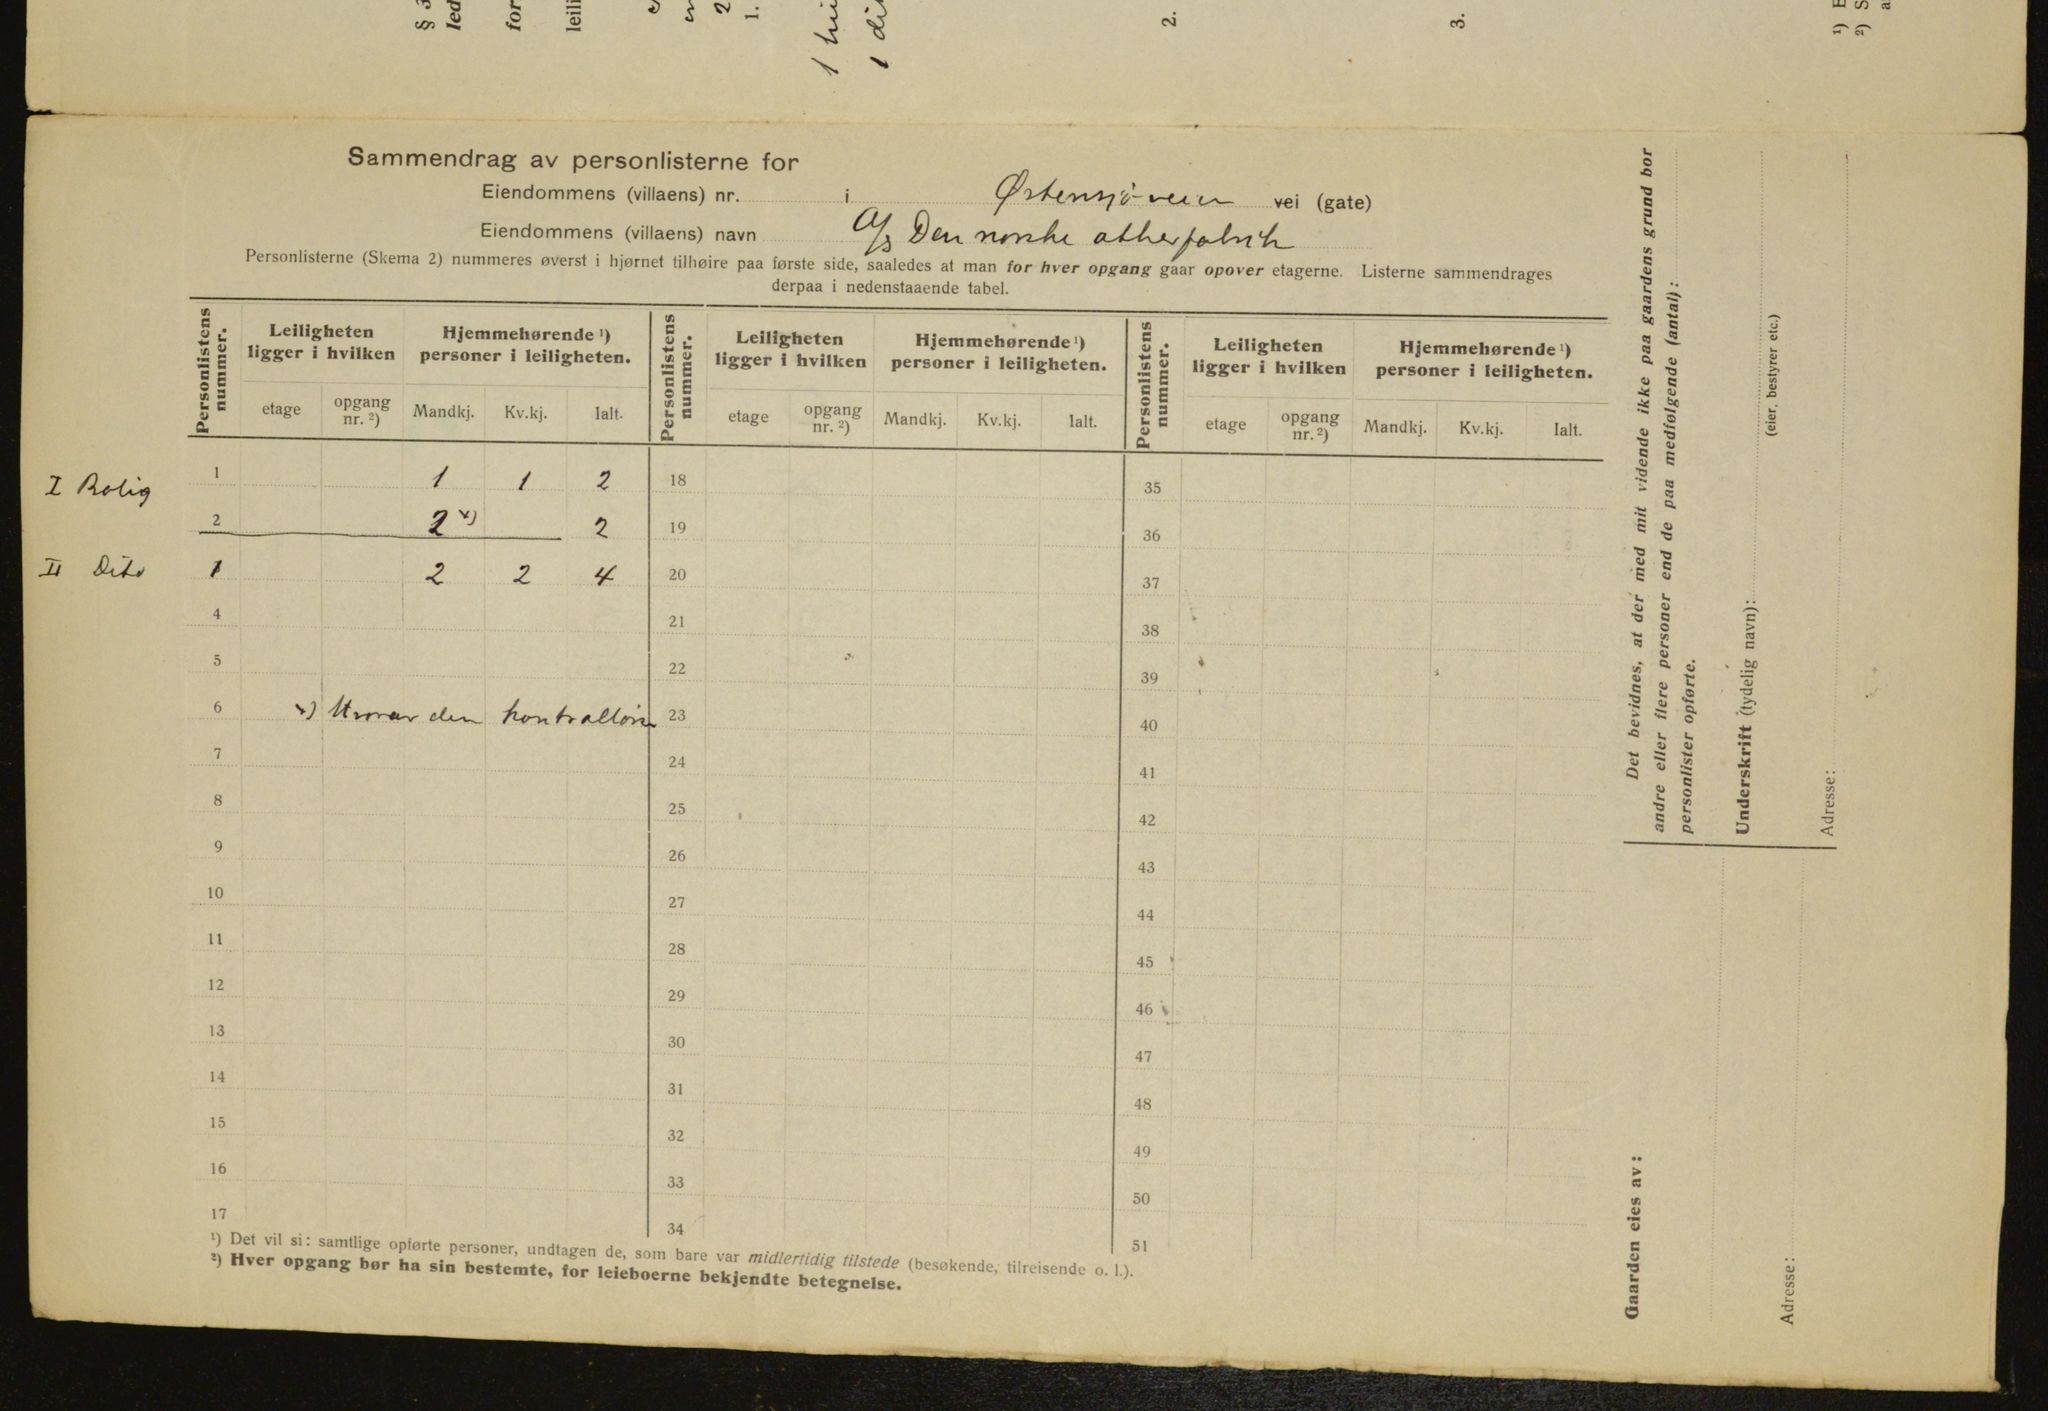 § 3
led
for
leili
2
1.
1 hu
1 dit
2.
3.
¹) E
²) S
a
Sammendrag av personlisterne for
Eiendommens (villaens) nr. i Østensjøveien vei (gate)
Eiendommens (villaens) navn A/s Den norske ætherfabrik
Personlisterne (Skema 2) nummeres øverst i hjørnet tilhøire paa første side, saaledes at man for hver opgang gaar opover etagerne. Listerne sammendrages
derpaa i nedenstaaende tabel.
Personlistens nummer. Leiligheten ligger i hvilken Hjemmehørende ¹) personer i leiligheten. Personlistens nummer. Leiligheten ligger i hvilken Hjemmehørende ¹) personer i leiligheten. Personlistens nummer. Leiligheten ligger i hvilken Hjemmehørende ¹) personer i leiligheten.
etage opgang nr. ²) Mandkj. Kv.kj. Ialt. etage opgang nr. ²) Mandkj. Kv.kj. Ialt. etage opgang nr. ²) Mandkj. Kv.kj. Ialt.
I Bolig 1 1 1 2 18 35
2 2 x) 2 19 36
II Dito 1 2 2 4 20 37
4 21 38
5 22 39
6 x) den 23 40
7 24 41
8 25 42
9 26 43
10 27 44
11 28 45
12 29 46
13 30 47
14 31 48
15 32 49
16 33 50
17 34 51
¹) Det vil si: samtlige opførte personer, undtagen de, som bare var midlertidig tilstede (besøkende, tilreisende o. l.).
²) Hver opgang bør ha sin bestemte, for leieboerne bekjendte betegnelse.
Det bevidnes, at der med mit vidende ikke paa gaardens grund bor
andre eller flere personer end de paa medfølgende (antal):
personlister opførte.
Underskrift (tydelig navn):
(eier, bestyrer etc.)
Adresse:
Gaarden eies av:
Adresse: